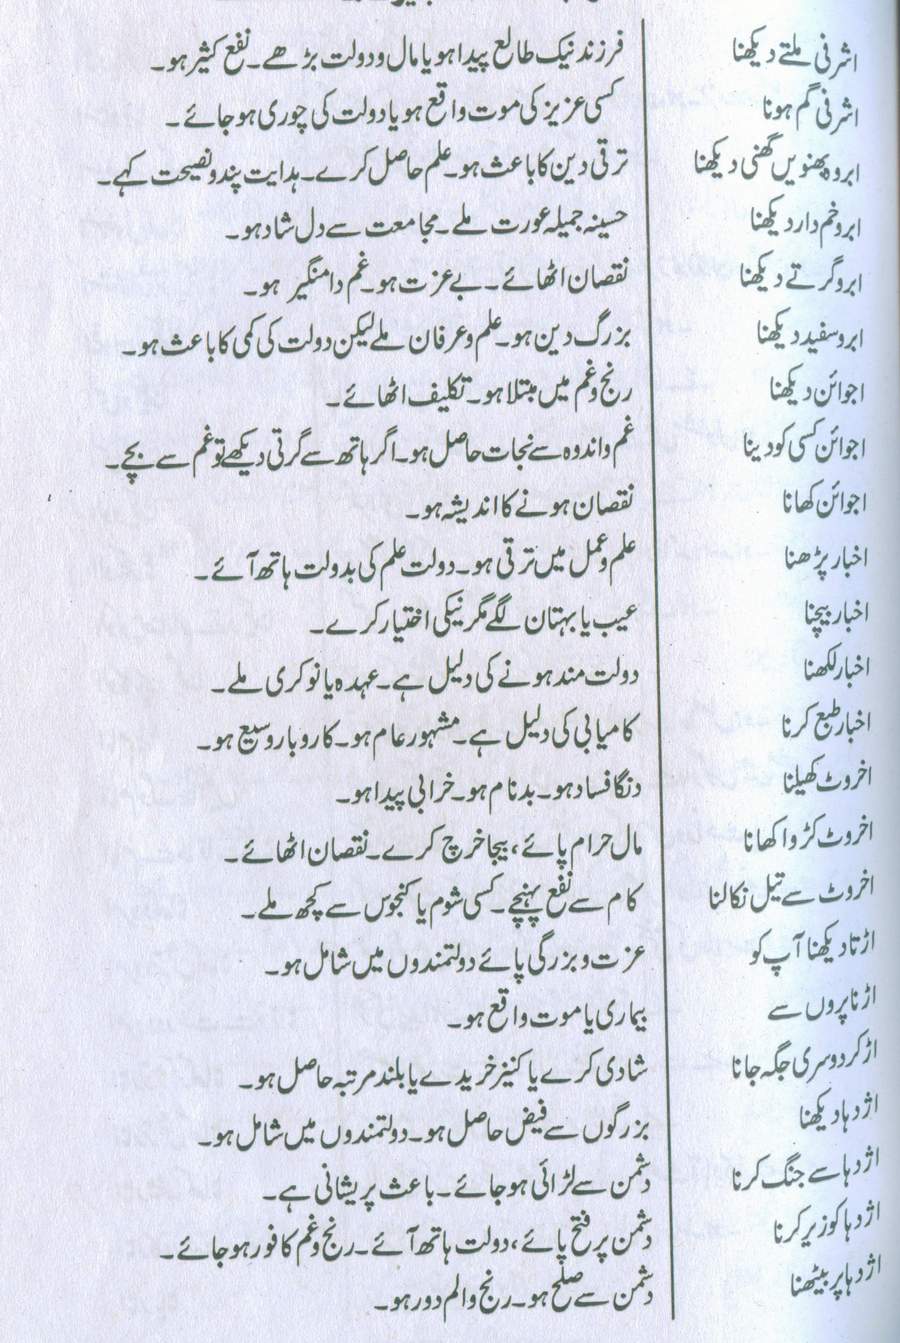 اشرفی ملتے دیکھنا فرزند نیک طالع پیدا ہو یا مال و دولت بڑھے۔ نفع کثیر ہو۔
اشرفی گم ہونا کسی عزیز کی موت واقع ہو یا دولت کی چوری ہو جائے۔
ابرو بھنویں گھنی دیکھنا ترقی دین کا باعث ہو۔ علم حاصل کرے۔ ہدایت پند و نصیحت کہے۔
ابرو خم دار دیکھنا حسینہ جمیلہ عورت ملے۔ مجامعت سے دل شاد ہو۔
ابرو گرتے دیکھنا نقصان اٹھائے۔ بے عزت ہو۔ غم دامنگیر ہو۔
ابرو سفید دیکھنا بزرگ دین ہو۔ علم و عرفان ملے لیکن دولت کی کمی کا باعث ہو۔
اجوائن دیکھنا رنج و غم میں مبتلا ہو۔ تکلیف اٹھائے۔
اجوائن کسی کو دینا غم و اندوہ سے نجات حاصل ہو۔ اگر ہاتھ سے گرتی دیکھے تو غم سے بچے۔
اجوائن کھانا نقصان ہونے کا اندیشہ ہو۔
اخبار پڑھنا علم و عمل میں ترقی ہو۔ دولت علم کی بدولت ہاتھ آئے۔
اخبار بیچنا عیب یا بہتان لگے مگر نیکی اختیار کرے۔
اخبار لکھنا دولت مند ہونے کی دلیل ہے۔ عہدہ یا نوکری ملے۔
اخبار طبع کرنا کامیابی کی دلیل ہے۔ مشہور عام ہو۔ کاروبار وسیع ہو۔
اخروٹ کھیلنا دنگا فساد ہو۔ بدنام ہو۔ خرابی پیدا ہو۔
اخروٹ کڑوا کھانا مال حرام پائے، بیجا خرچ کرے۔ نقصان اٹھائے۔
اخروٹ سے تیل نکالنا کام سے نفع پہنچے۔ کسی شوم یا کنجوس سے کچھ ملے۔
اڑتا دیکھنا آپ کو عزت و بزرگی پائے دولتمندوں میں شامل ہو۔
اڑنا پروں سے بیماری یا موت واقع ہو۔
اڑ کر دوسری جگہ جانا شادی کرے یا کنیز خریدے یا بلند مرتبہ حاصل ہو۔
اژدہا دیکھنا بزرگوں سے فیض حاصل ہو۔ دولتمندوں میں شامل ہو۔
اژدہا سے جنگ کرنا دشمن سے لڑائی ہو جائے۔ باعث پریشانی ہے۔
اژدہا کو زیر کرنا دشمن پر فتح پائے، دولت ہاتھ آئے۔ رنج و غم کافور ہو جائے۔
اژدہا پر بیٹھنا دشمن سے صلح ہو۔ رنج و الم دور ہو۔